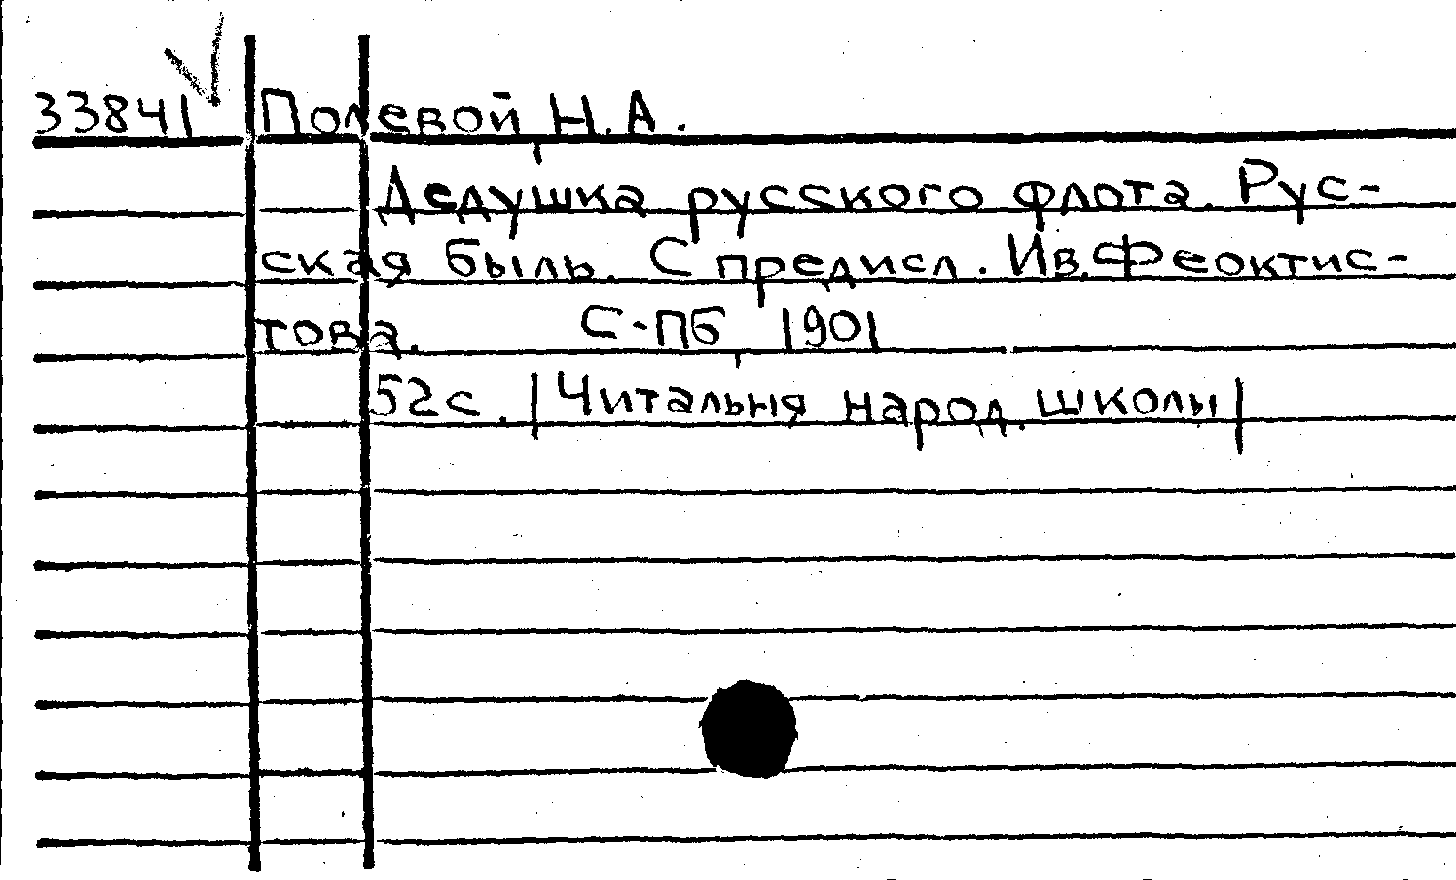 33841 Полевой, Н.А.
Дедушка русского флота. Рус-
ская быль. С предисл. Ив. Феоктис-
това. С-ПБ, 1901
52 с. |Читальня народ. школы|